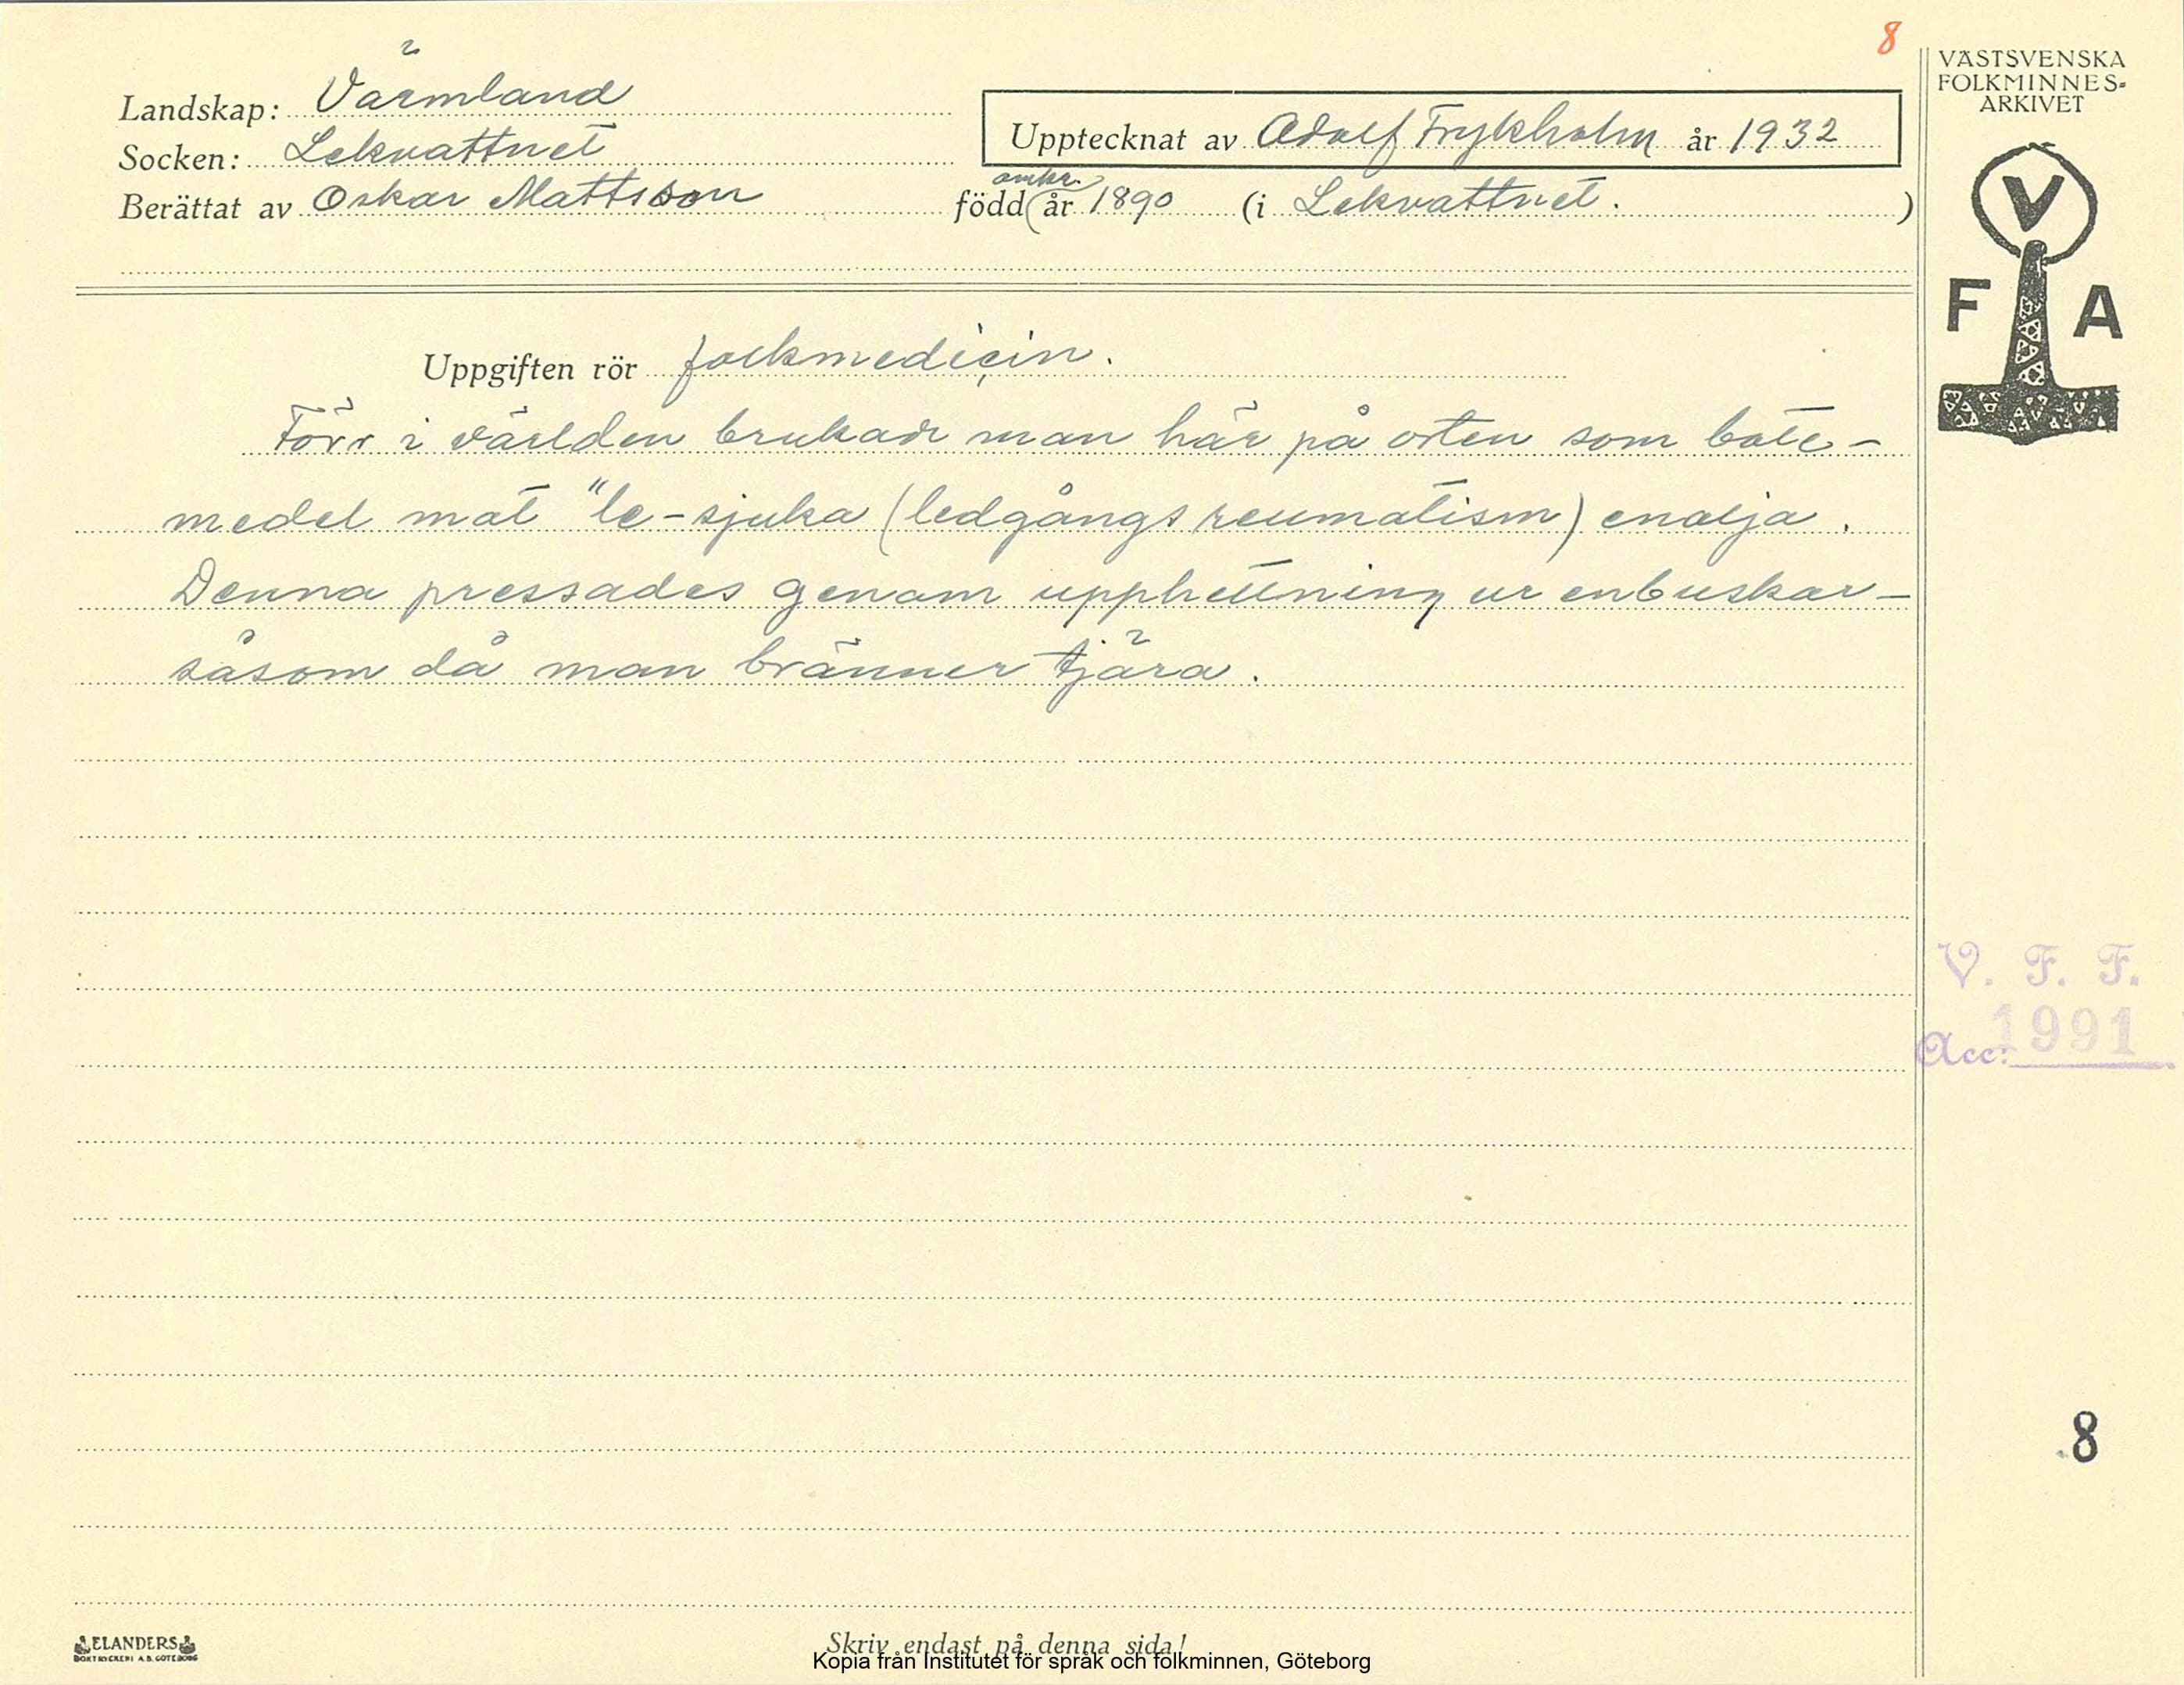 8
VÄSTSVENSKA
FOLKMINNES-
ARKIVET
Landskap: Värmland
Upptecknat av Adolf Frykholm år 1932
Socken: Lekvattnet
omkr.
Berättat av Oskar Mattsson född (år 1890 (i Lekvattnet. )
V
F A
Uppgiften rör folkmedicin.
Förr i världen brukade man här på orten som bote-
medel mot "le-sjuka (ledgångsreumatism) enolja.
Denna pressades genom upphettning ur enbuskar -
såsom då man bränner tjära.
V. F. F.
Acc: 1991
8
ELANDERS
BOKTRYCKERI A.B. GÖTEBORG
Skriv endast på denna sida!
Kopia från Institutet för språk och folkminnen, Göteborg